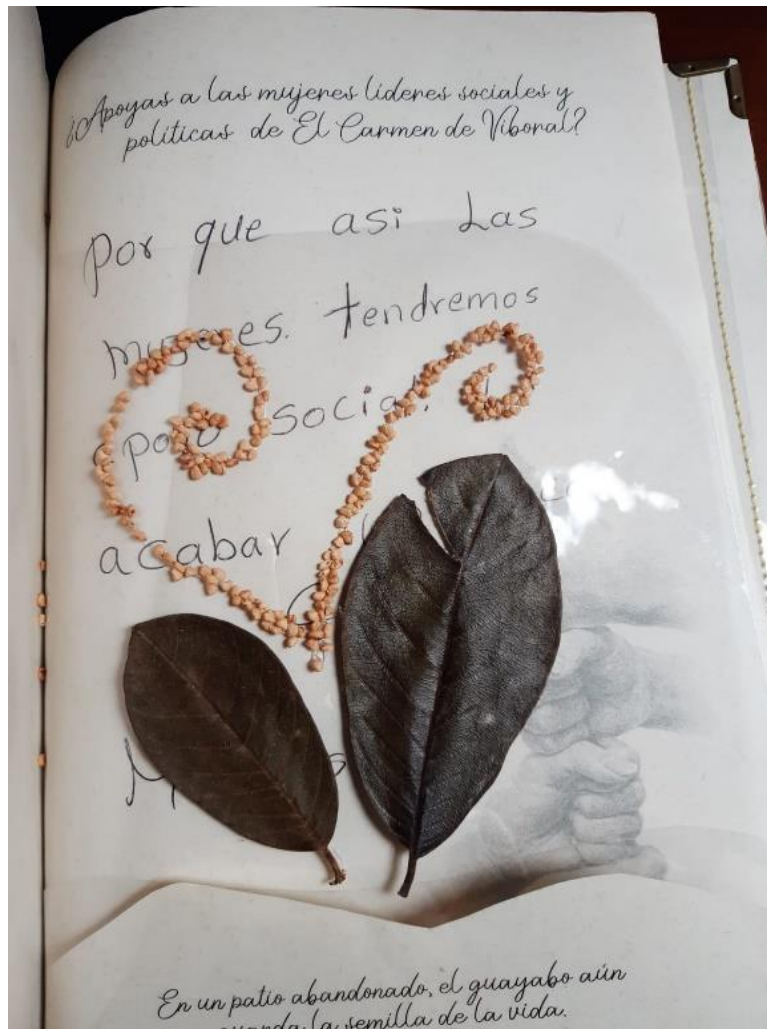 ¿Apoyas a las mujeres líderes sociales y
políticas de El Carmen de Viboral?
Por que asi Las
mujeres. tendremos
apoyo social.
acabar
En un patio abandonado, el guayabo aún
guarda la semilla de la vida.